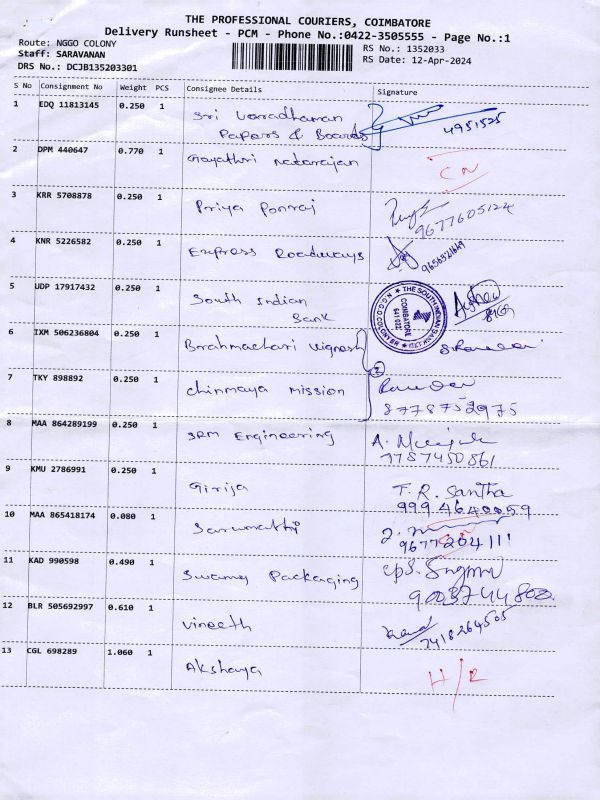 THE PROFESSIONAL COURIERS, COIMBATORE
Delivery Runsheet - PCM - Phone No.:0422-3505555 - Page No.:1
Route: NGGO COLONY
Staff: SARAVANAN
DRS No.: DCJB135203301
RS No.: 1352033
RS Date: 12-Apr-2024
S No Consignment No Weight PCS Consignee Details Signature
1 EDQ 11813145 0.250 1 Sri Varadhaman
Papers & Boards 4951525
2 DPM 440647 0.770 1 Gayathri Natarajan CN
3 KRR 5708878 0.250 1 Priya Ponraj
9677605124
4 KNR 5226582 0.250 1 Express Roadways
9656321649
5 UDP 17917432 0.250 1 South Indian
Bank
THE SOUTH INDIAN BANK
COIMBATORE
641 022
N.G.G.O COLONY BR
6 IXM 506236804 0.250 1 Brahmachari Vignesh
2
7 TKY 898892 0.250 1 Chinmaya Mission
8778752975
8 MAA 864289199 0.250 1 SRM Engineering
7787450861
9 KMU 2786991 0.250 1 Girija T.R. Santha
9994640059
10 MAA 865418174 0.080 1 Sarumathi
9677204111
11 KAD 990598 0.490 1 Swamy Packaging
9003744800
12 BLR 505692997 0.610 1 Vineeth
7418264505
13 CGL 698289 1.060 1 Akshaya H/R